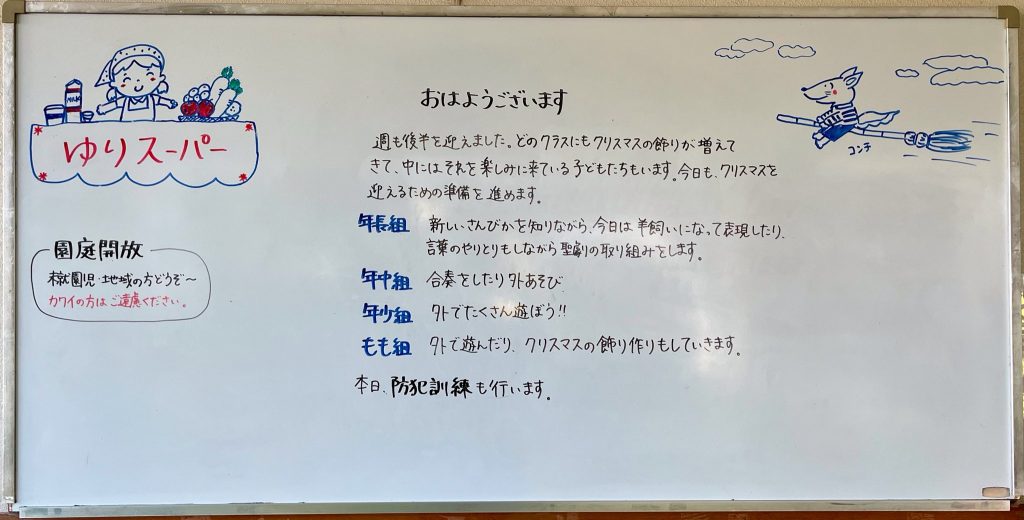 ゆりスーパー
MILK
園庭開放
園児・地域の方どうぞ〜
カワイの方はご遠慮ください。
おはようございます
週も後半を迎えました。どのクラスにもクリスマスの飾りが増えて
きて、中にはそれを楽しみに来ている子どもたちもいます。今日も、クリスマスを
迎えるための準備を進めます。
年長組 新しいさんびかを知りながら、今日は羊飼いになって表現したり、
言葉のやりとりもしながら聖劇の取り組みをします。
年中組 合奏をしたり外あそび
年少組 外でたくさん遊ぼう!!
もも組 外で遊んだり、クリスマスの飾り作りもしていきます。
本日、防犯訓練も行います。
コンチ